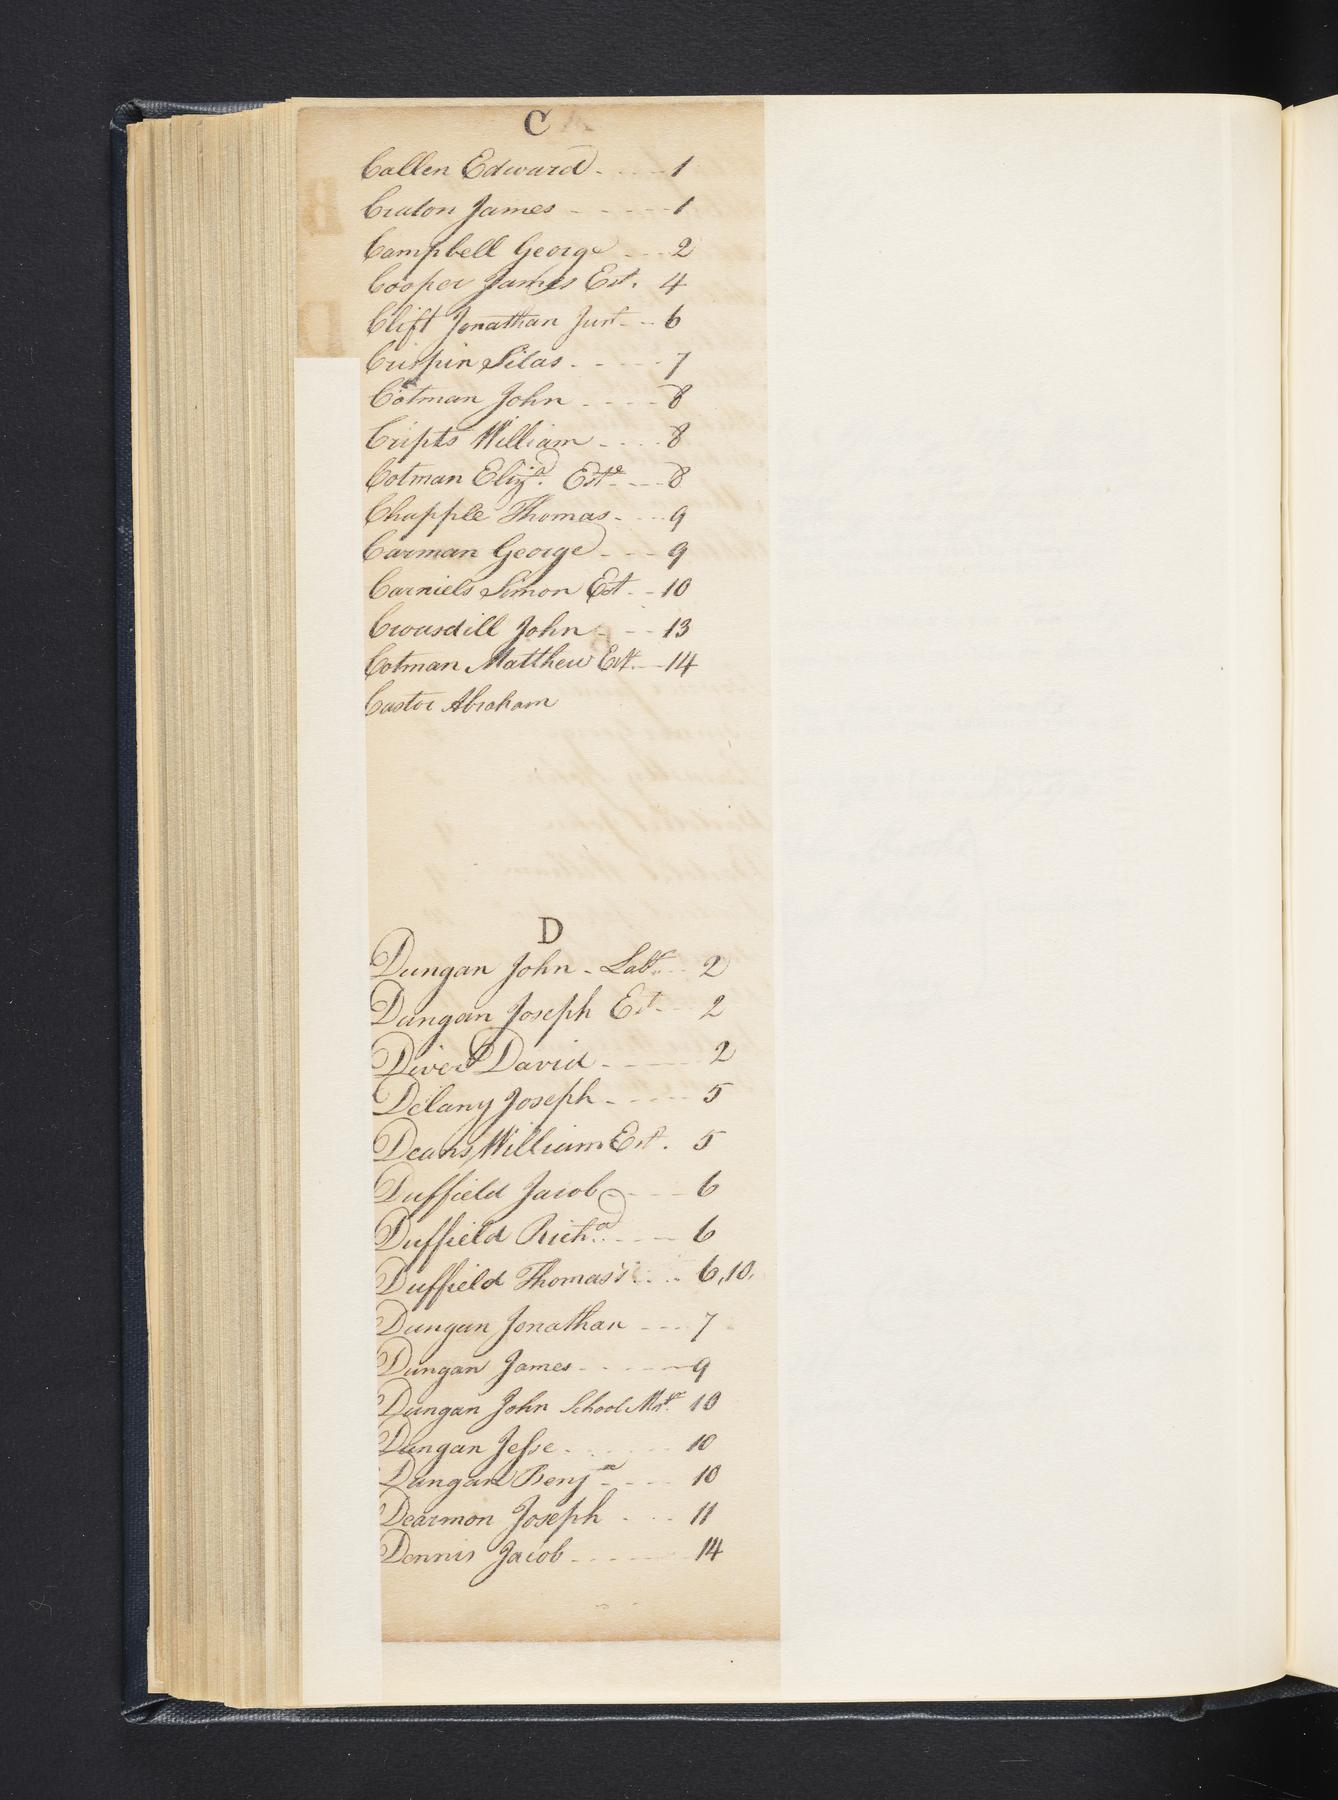 C
Callen Edward - - - - 1
Craton James - - - - - 1
Campbell George - - - 2
Cooper James Est. 4
Clift Jonathan Junr - - 6
Crispin Silas - - - - - 7
Cotman John - - - - 8
Cripts William - - - - 8
Cotman Eliza. Este - - - 8
Chapple Thomas - - - - 9
Carman George - - - 9
Carniels Simon Est - - 10
Crousdill John - - - 13
Cotman Matthew Est. - 14
Castor Abraham
D
Dungan John - Labr. - - 2
Dungan Joseph Est - - 2
Diver David - - - - 2
Delany Joseph - - - - - 5
Deans William Est. 5
Duffield Jacob - - - - 6
Duffield Richd. - - - - 6
Duffield Thomas's - - - 6,10.
Dungan Jonathan - - - 7
Dungan James - - - - - 9
Dungan John School Mstr. 10
Dungan Jesse - - - - - 10
Dungan Benjn - - - - 10
Dearmon Joseph - - - 11
Dennis Jacob - - - - - 14
B
D